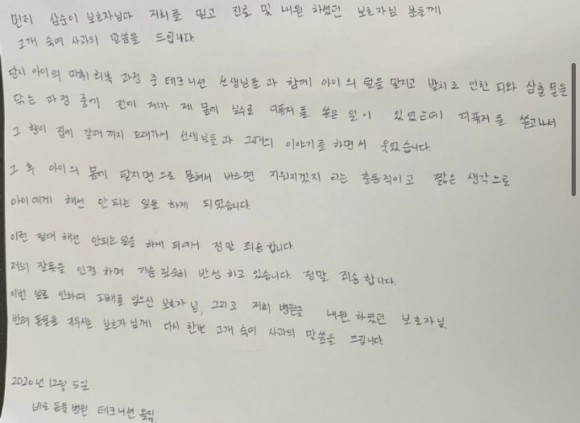 먼저 삼순이 보호자님과 저희를 믿고 진료 및 내원 하셨던 보호자님 분들께
고개 숙여 사과의 말씀을 드립니다.
당시 아이의 마취 회복 과정 중 테크니션 선생님들과 함께 아이의 털을 말리고 발치로 인한 피와 삼출물을
닦는 과정 중에 전에 제가 제 몸에 실수로 디퓨저를 쏟은 일이 있었는데 디퓨저를 쏟고나서
그 향이 집에 갈때까지 오래가서 선생님들과 그때의 이야기를 하면서 웃었습니다.
그 후 아이의 몸에 발라지면 으로 묻혀서 바르면 지워지겠지 라는 충동적이고 짧은 생각으로
아이에게 해선 안되는 일을 하게 되었습니다.
이런 절대 해선 안되는일을 하게 되어서 정말 죄송합니다.
저의 잘못을 인정 하며 가슴 깊숙히 반성 하고 있습니다. 정말 죄송합니다.
이번 일로 인하여 피해를 입으신 보호자님, 그리고 저희 병원을 내원 하셨던 보호자님,
반려 동물을 키우시는 보호자님께 다시 한번 고개 숙여 사과의 말씀을 드립니다.
2020년 12월 5일
동물병원 테크니션 올림.